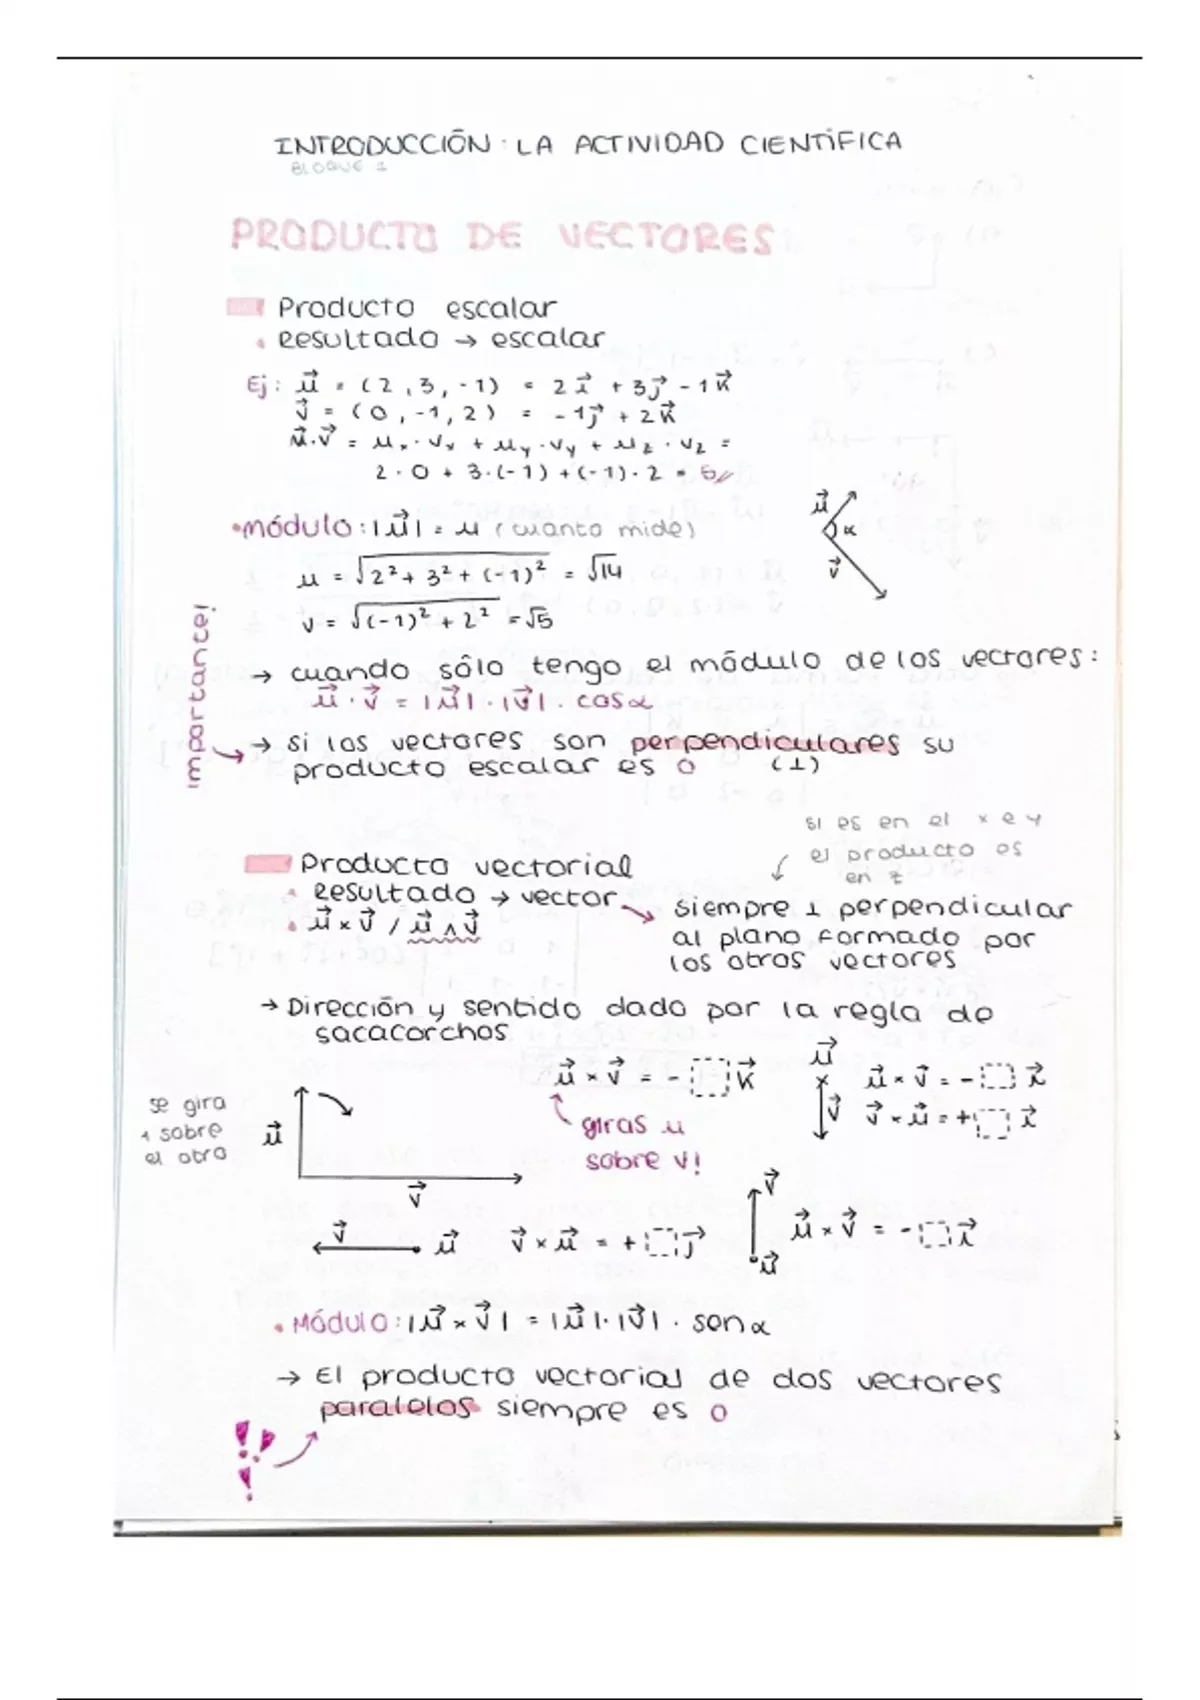 INTRODUCCIÓN: LA ACTIVIDAD CIENTÍFICA
BLOQUE 1
PRODUCTO DE VECTORES
Producto escalar
• Resultado → escalar
Ej: u⃗ = (2, 3, -1) = 2i⃗ + 3j⃗ - 1k⃗
v⃗ = (0, -1, 2) = -1j⃗ + 2k⃗
u⃗·v⃗ = ux · vx + uy · vy + uz · vz =
2·0 + 3·(-1) + (-1)·2 = 5//
• Módulo: |u⃗| = u (cuanto mide)
u⃗
α
v⃗
u = √2² + 3² + (-1)² = √14
v = √(-1)² + 2² = √5
importante!
→ cuando sólo tengo el módulo de los vectores:
u⃗ · v⃗ = |u⃗| · |v⃗| · cos α
→ si los vectores son perpendiculares su
producto escalar es 0 (⊥)
si es en el x e y
el producto es
en z
Producto vectorial
• Resultado → vector → siempre ⊥ perpendicular
al plano formado por
los otros vectores
• u⃗ × v⃗ / u⃗ ∧ v⃗
→ Dirección y sentido dado por la regla de
sacacorchos
se gira
1 sobre
el otro
u⃗
v⃗
u⃗ × v⃗ = - □ k⃗
giras u
sobre v!
u⃗
v⃗
u⃗ × v⃗ = - □ i⃗
v⃗ × u⃗ = + □ i⃗
v⃗ u⃗ v⃗ × u⃗ = + □ j⃗
v⃗
u⃗
u⃗ × v⃗ = - □ i⃗
• Módulo: |u⃗ × v⃗| = |u⃗| · |v⃗| · sen α
→ El producto vectorial de dos vectores
paralelos siempre es 0
!!
!